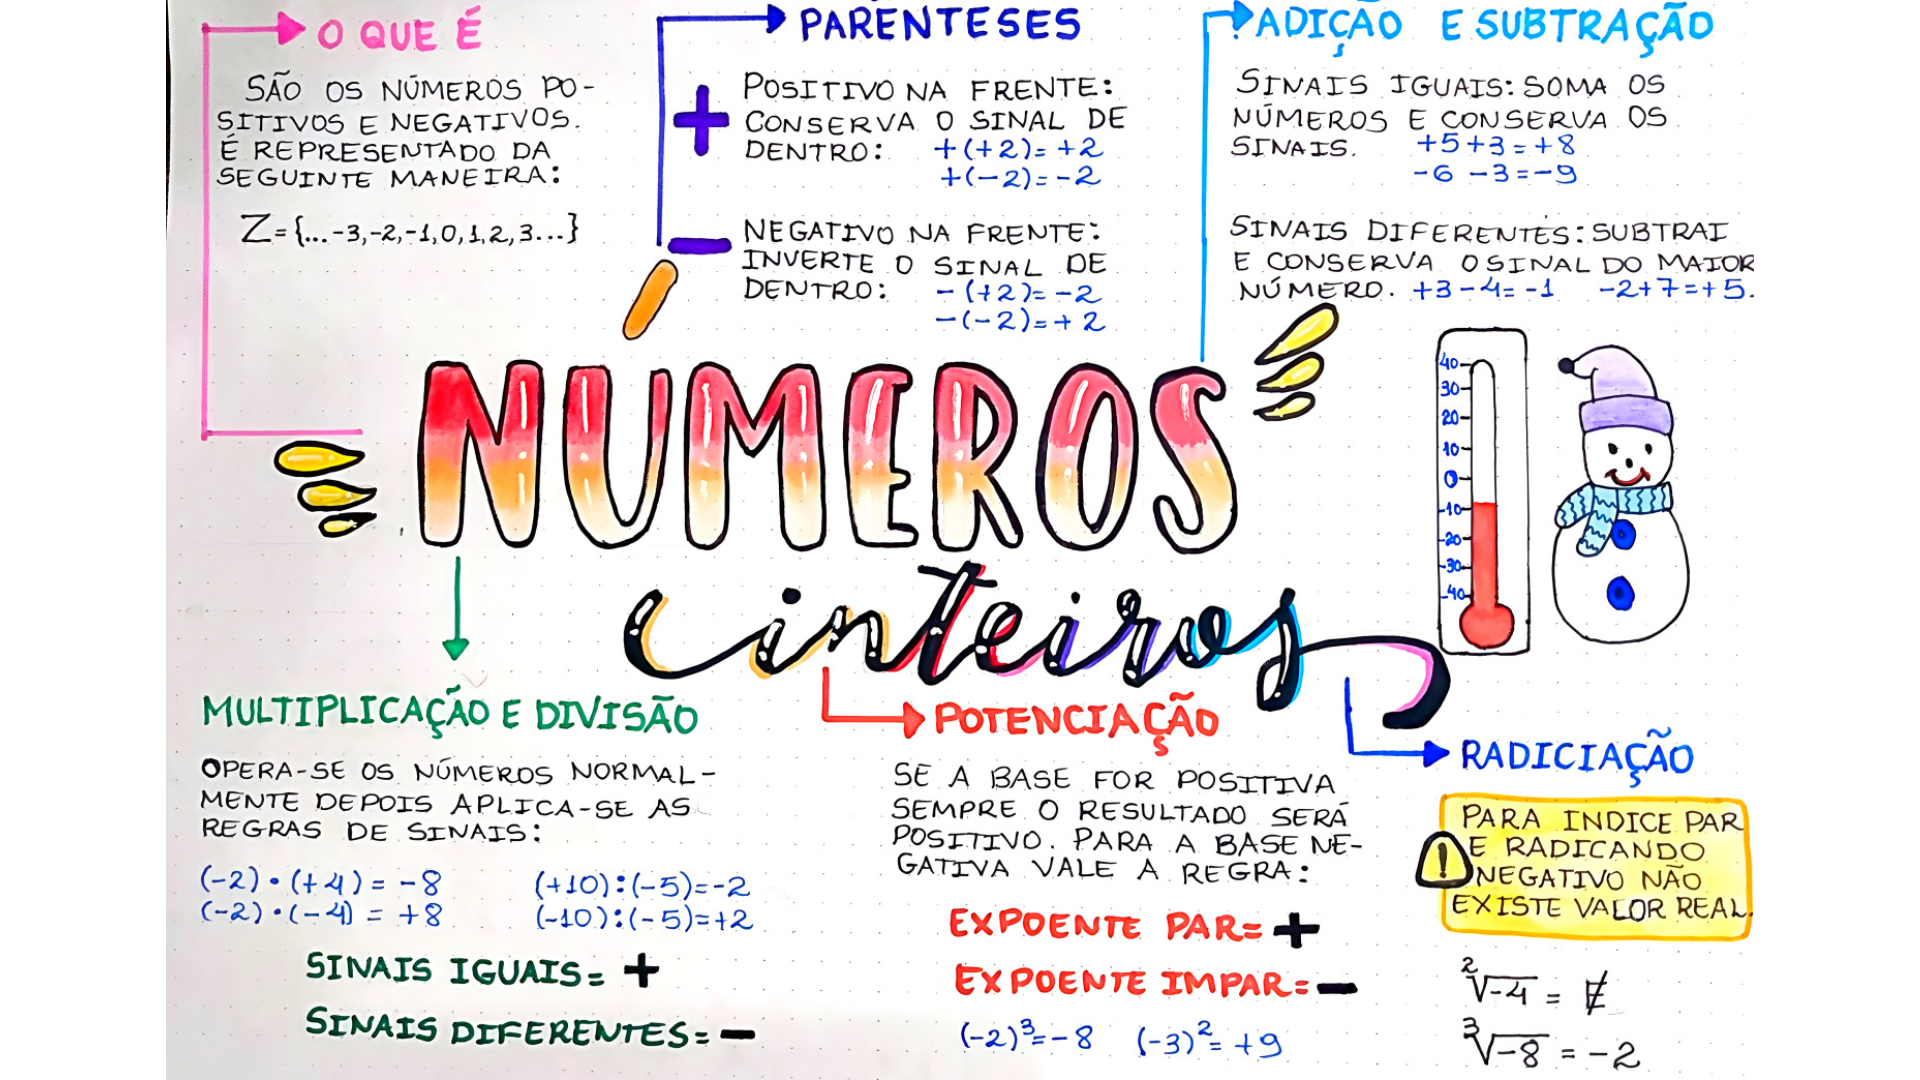 O QUE É
SÃO OS NÚMEROS PO-
SITIVOS E NEGATIVOS.
É REPRESENTADO DA
SEGUINTE MANEIRA:
Z={...-3,-2,-1,0,1,2,3...}
PARÊNTESES
+
POSITIVO NA FRENTE:
CONSERVA O SINAL DE
DENTRO: +(+2)=+2
+(-2)=-2
-
NEGATIVO NA FRENTE:
INVERTE O SINAL DE
DENTRO: -(+2)=-2
-(-2)=+2
ADIÇÃO E SUBTRAÇÃO
SINAIS IGUAIS: SOMA OS
NÚMEROS E CONSERVA OS
SINAIS. +5+3=+8
-6-3=-9
SINAIS DIFERENTES: SUBTRAI
E CONSERVA O SINAL DO MAIOR
NÚMERO. +3-4=-1 -2+7=+5.
NÚMEROS
inteiros
40
30
20
10
0
-10
-20
-30
-40
MULTIPLICAÇÃO E DIVISÃO
OPERA-SE OS NÚMEROS NORMAL-
MENTE DEPOIS APLICA-SE AS
REGRAS DE SINAIS:
(-2)•(+4)=-8 (+10):(-5)=-2
(-2)•(-4)=+8 (-10):(-5)=+2
SINAIS IGUAIS= +
SINAIS DIFERENTES= -
POTENCIAÇÃO
SE A BASE FOR POSITIVA
SEMPRE O RESULTADO SERÁ
POSITIVO. PARA A BASE NE-
GATIVA VALE A REGRA:
EXPOENTE PAR= +
EXPOENTE IMPAR= -
(-2)³=-8 (-3)²=+9
RADICIAÇÃO
!
PARA INDICE PAR
E RADICANDO
NEGATIVO NÃO
EXISTE VALOR REAL.
²√-4 = ∄
³√-8 = -2